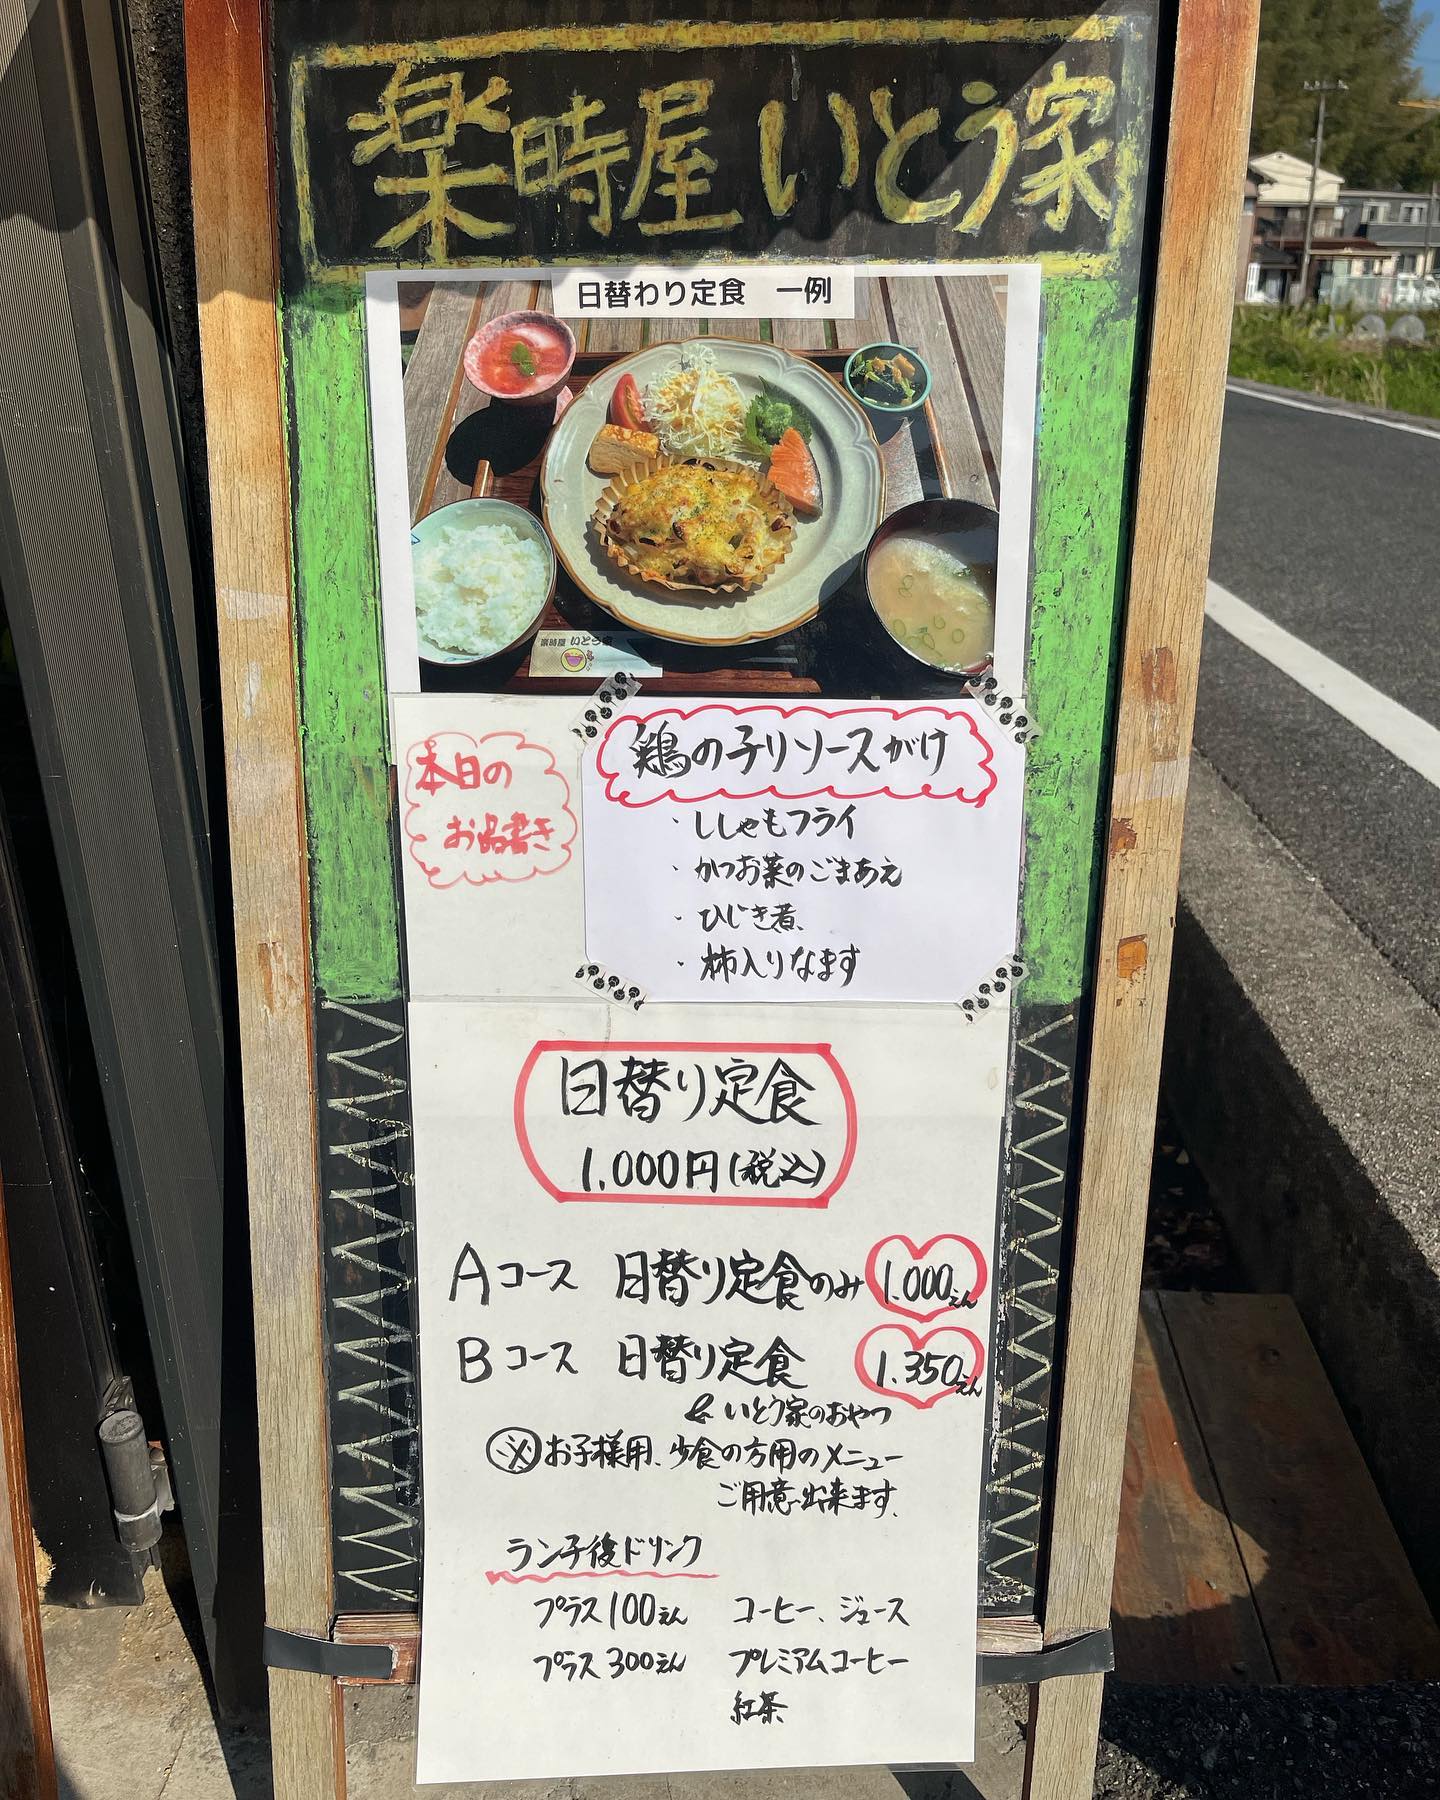 楽時屋 いとう家
日替わり定食 一例
楽時屋 いとう家
本日の
お品書き
鶏のチリソースがけ
・ししゃもフライ
・かつお菜のごまあえ
・ひじき煮
・柿入りなます
日替り定食
1.000円(税込)
Aコース 日替り定食のみ 1.000えん
Bコース 日替り定食 1.350えん
& いとう家のおやつ
※お子様用、少食の方用のメニュー
ご用意出来ます。
ランチ後ドリンク
プラス100えん コーヒー、ジュース
プラス300えん プレミアムコーヒー
紅茶